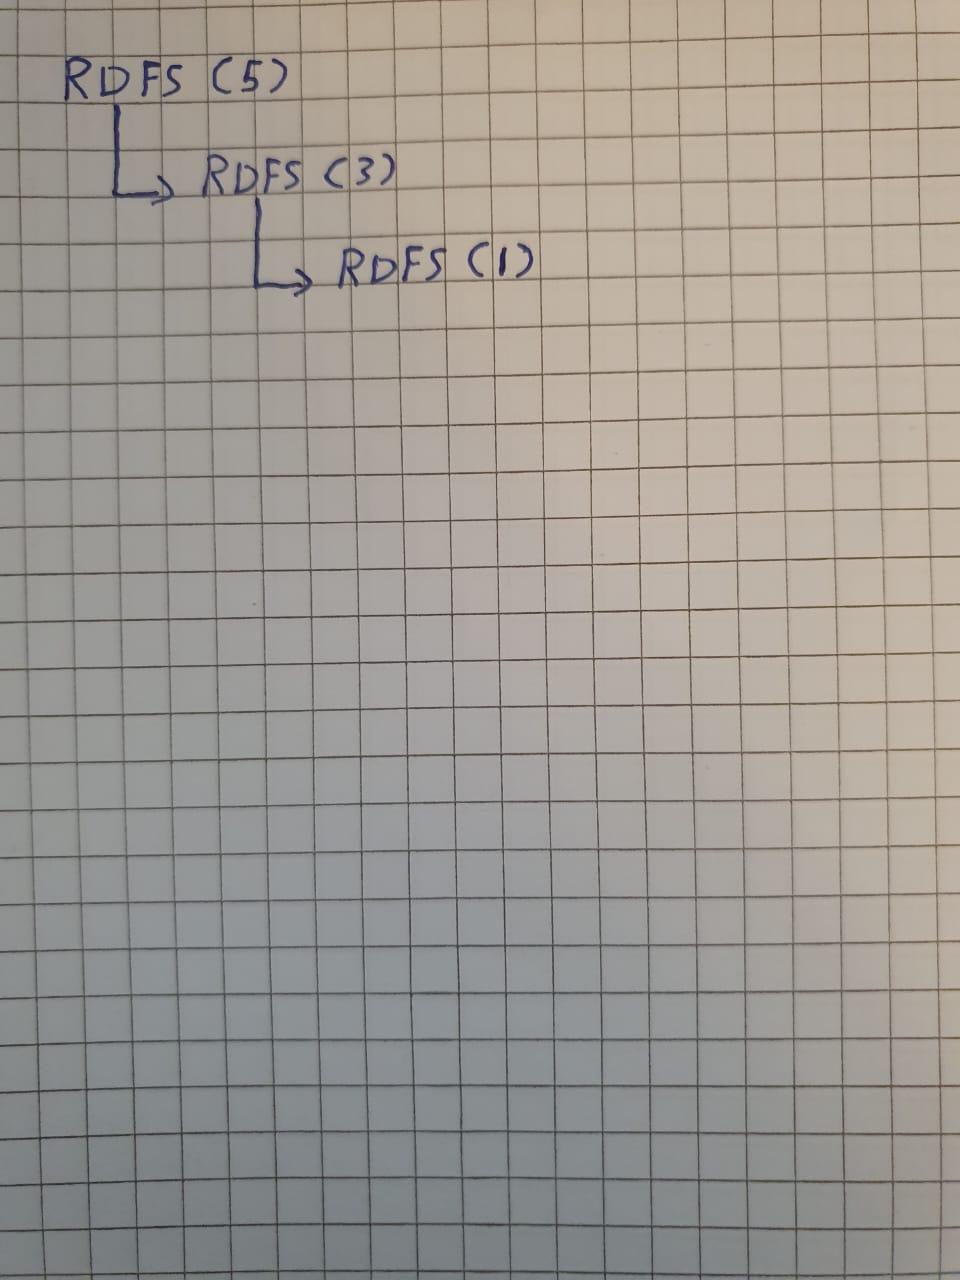 RDFS (5)
RDFS (3)
RDFS (1)